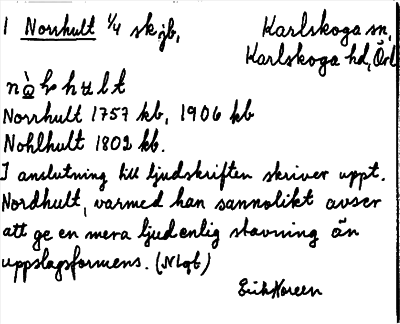 1 Norrhult 1/4 skjb, Karlskoga sn,
Karlskoga hd, Örl
Norrhult 1757 kb, 1906 kb
Nohlhult 1802 kb.
I anslutning till ljudskriften skriver uppt.
Nordhult, varmed han sannolikt avser
att ge en mera ljudenlig stavning än
uppslagsformens. (Nlqb)
Erik Noreen